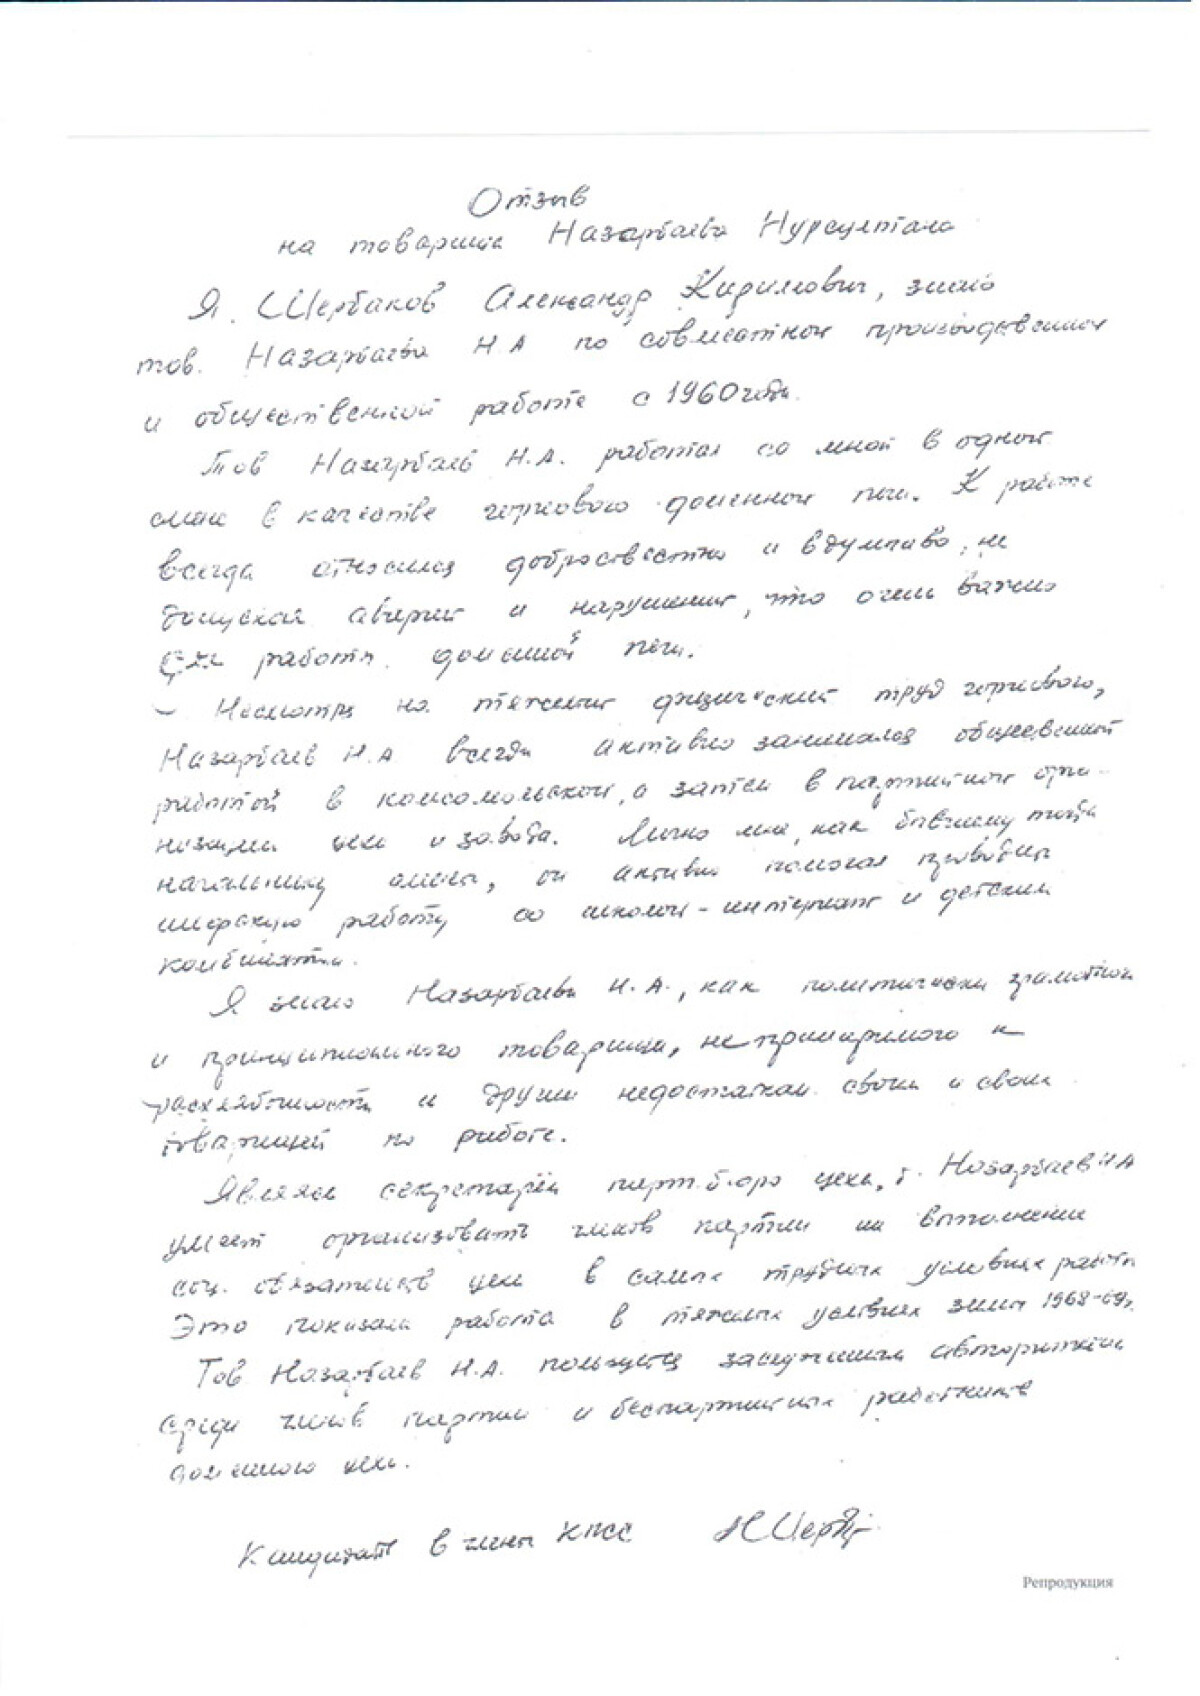 Отзыв
на товарища Назарбаева Нурсултана
Я, Щербаков Александр Кириллович, знаю
тов. Назарбаева Н.А по совместной производственной
и общественной работе с 1960 года.
Тов Назарбаев Н.А. работал со мной в одной
смене в качестве горнового доменной печи. К работе
всегда относился добросовестно и вдумчиво, не
допуская аварий и нарушений, что очень важно
для работы доменной печи.
– Несмотря на тяжелый физический труд горнового,
Назарбаев Н.А. всегда активно занимался общественной
работой в комсомольской, а затем в партийной орга-
низации цеха и завода. Лично мне, как бывшему тогда
начальнику смены, он активно помогал проводить
шефскую работу со школой-интернат и детским
комбинатом.
Я знаю Назарбаева Н.А., как политически грамотного
и принципиального товарища, непримиримого к
расхлябанности и другим недостаткам своим и своих
товарищей по работе.
Являясь секретарём парт.бюро цеха, т. Назарбаев НА
умеет организовать членов партии на выполнение
соц. обязательств цеха в самых трудных условиях работы
Это показала работа в тяжелых условиях зимы 1968-69г.
Тов Назарбаев Н.А. пользуется заслуженным авторитетом
среди членов партии и беспартийных работников
доменного цеха.
Кандидат в члены КПСС Щерб
Репродукция